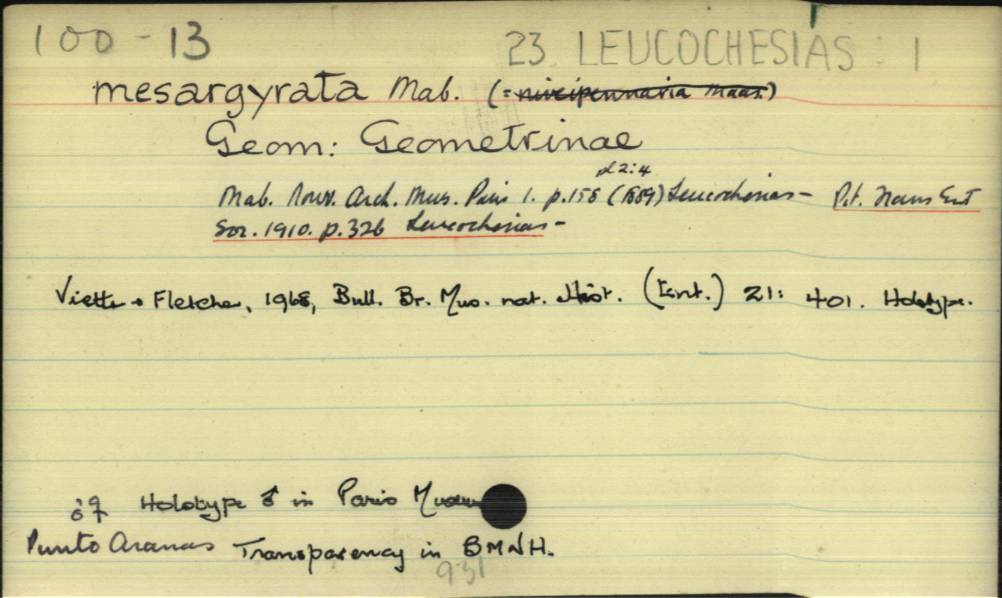 100-13
23 LEUCOCHESIAS : 1
mesargyrata Mab. (= niveipennaria Maas.)
Geom: Geometrinae
pl 2:4
Mab. Nouv. Arch. Mus. Paris 1. p.158 (1889) Leucochesias - P.t. Trans Ent
Soc. 1910. p.326 Leucochesias -
Viette + Fletcher, 1968, Bull. Br. Mus. nat. Hist. (Ent.) 21: 401. Holotype.
♂♀ Holotype ♂ in Paris Museum
Punto Aranas Transparency in BMNH.
931